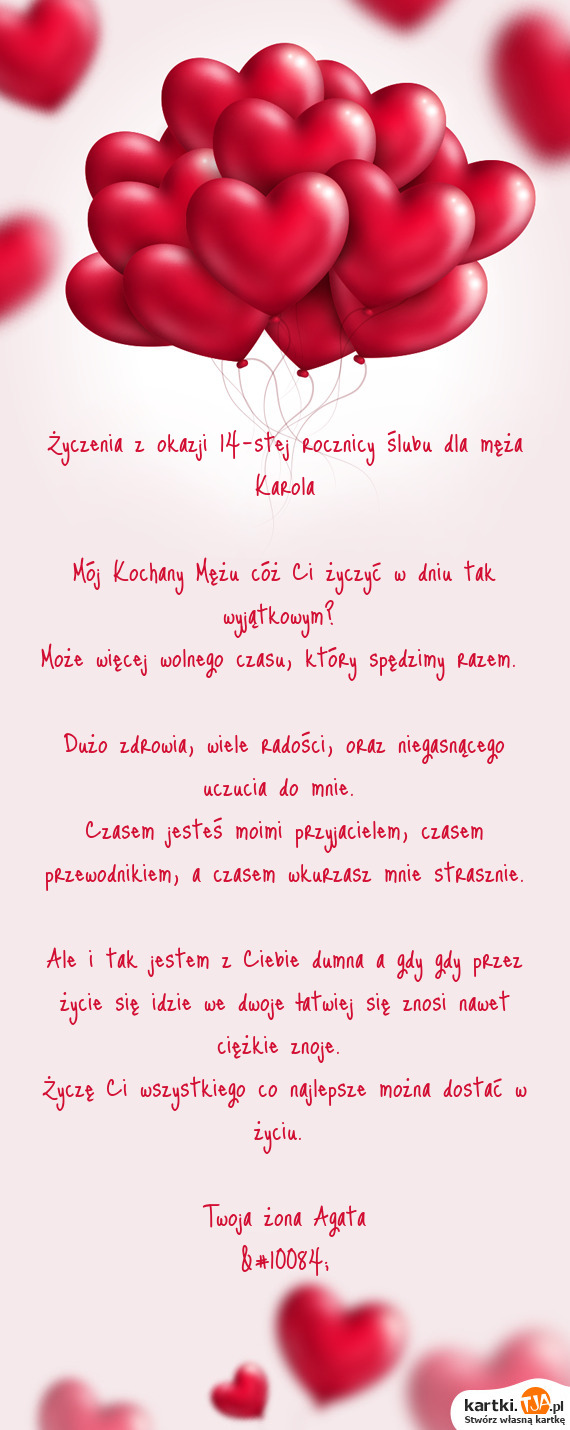 Życzenia z okazji 14-stej rocznicy ślubu dla męża
Karola
Mój Kochany Mężu cóż Ci życzyć w dniu tak
wyjątkowym?
Może więcej wolnego czasu, który spędzimy razem.
Dużo zdrowia, wiele radości, oraz niegasnącego
uczucia do mnie.
Czasem jesteś moimi przyjacielem, czasem
przewodnikiem, a czasem wkurzasz mnie strasznie.
Ale i tak jestem z Ciebie dumna a gdy gdy przez
życie się idzie we dwoje łatwiej się znosi nawet
ciężkie znoje.
Życzę Ci wszystkiego co najlepsze można dostać w
życiu.
Twoja żona Agata
&#10084;
kartki.TJA.pl
Stwórz własną kartkę